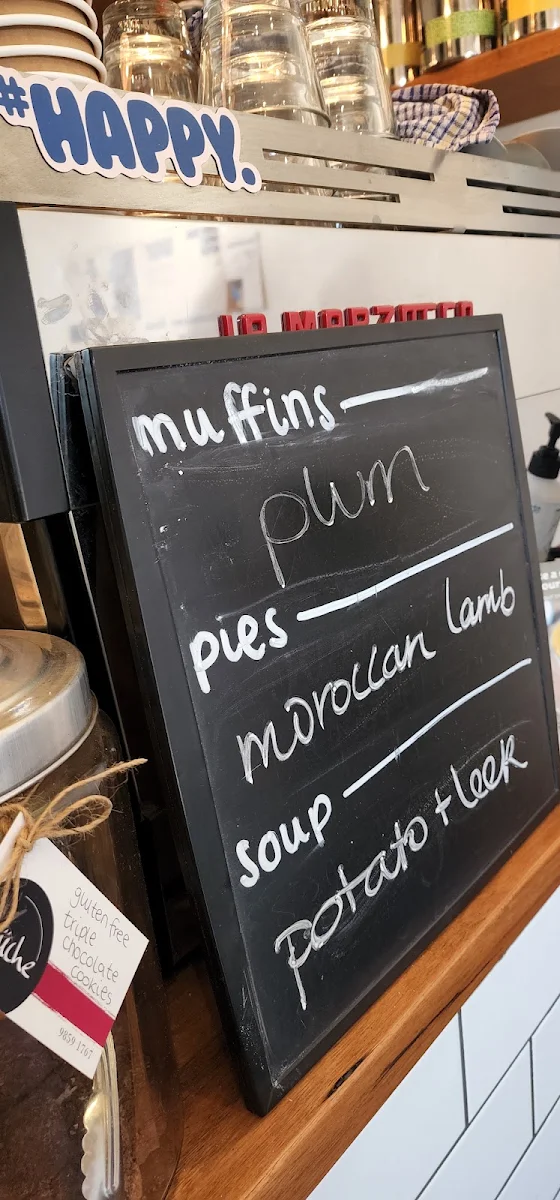 #HAPPY.
LA MARZOCCO
muffins
plum
pies
moroccan lamb
soup
potato + leek
gluten free
triple
chocolate
cookies
9859 1767